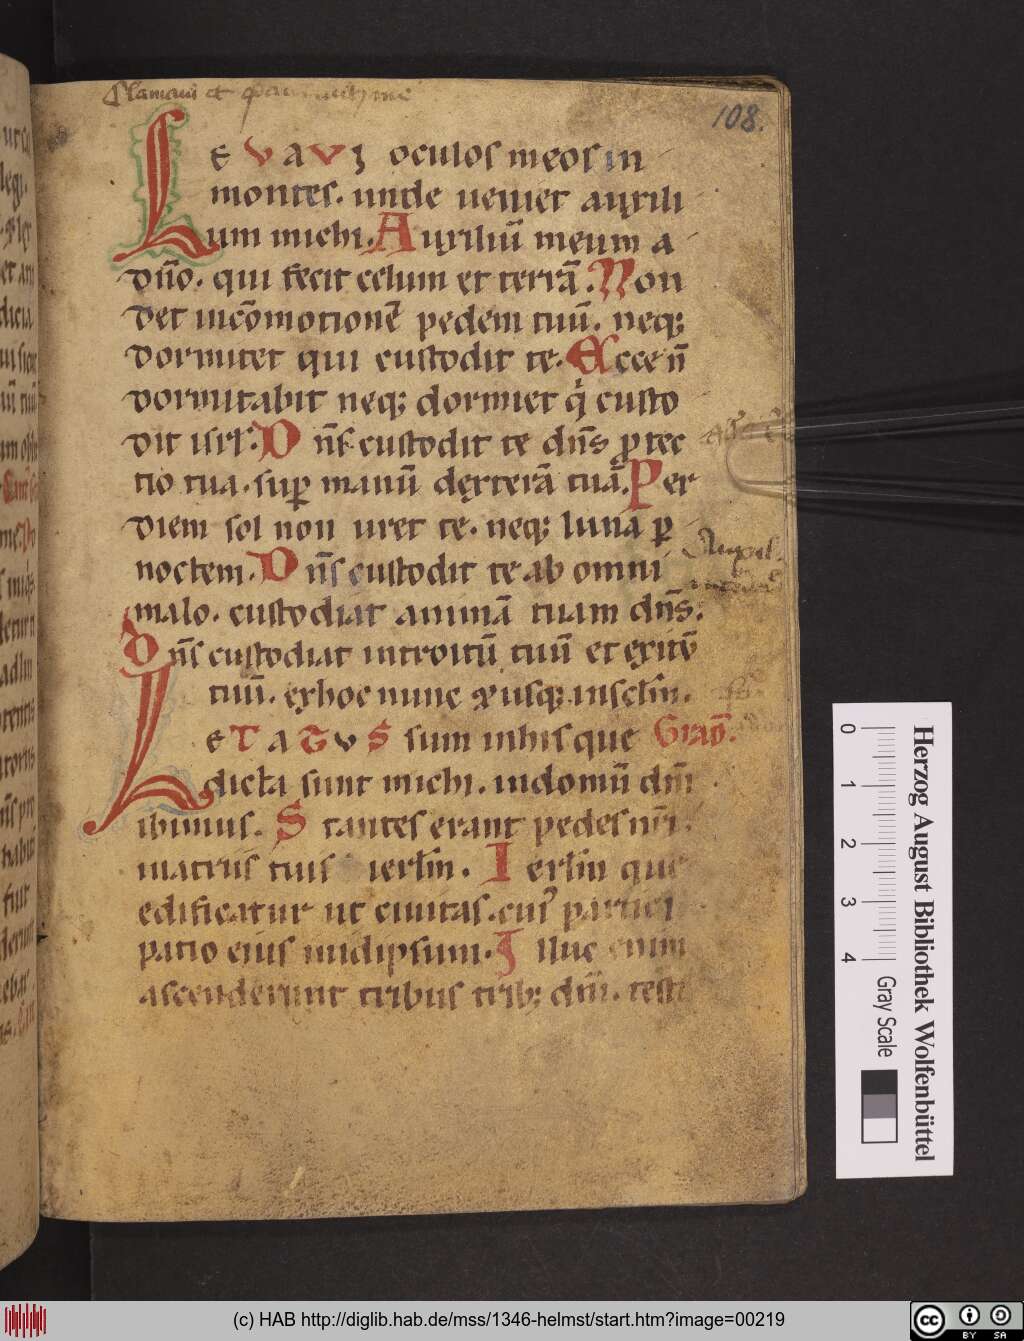 Clamaui et me
108.
LEVAVI oculos meos in
montes. unde ueniet auxili
um michi. Auxiliū meum a
dn̄o. qui fecit celum et terrā. Non
det incōmotionē pedem tuū. neq;
dormitet qui custodit te. Ecce n̄
dormitabit neq; dormiet q̇ custo
dit isrl̄. Dn̄s custodit te dn̄s ꝓtec
tio tua. suꝑ manū dexterā tuā. Per
diem sol non uret te. neq; luna ꝑ
noctem. Dn̄s custodit te ab omni
malo. custodiat animā tuam dn̄s.
Dn̄s custodiat introitū tuū et exitū
tuū. exhoc nunc & usq; inscl̄m.
LETATUS sum inhis que Graď.
dicta sunt michi. indomū dn̄i
ibimus. Stantes erant pedes nr̄i.
inatriis tuis ierl̄m. Ierl̄m que
edificatur ut ciuitas. cuiꝰ partici
patio eius inidipsum. Illuc enim
ascenderunt tribus trib; dn̄i. testi
Auxil.
0 1 2 3 4
Gray Scale
Herzog August Bibliothek Wolfenbüttel
(c) HAB http://diglib.hab.de/mss/1346-helmst/start.htm?image=00219
cc BY SA